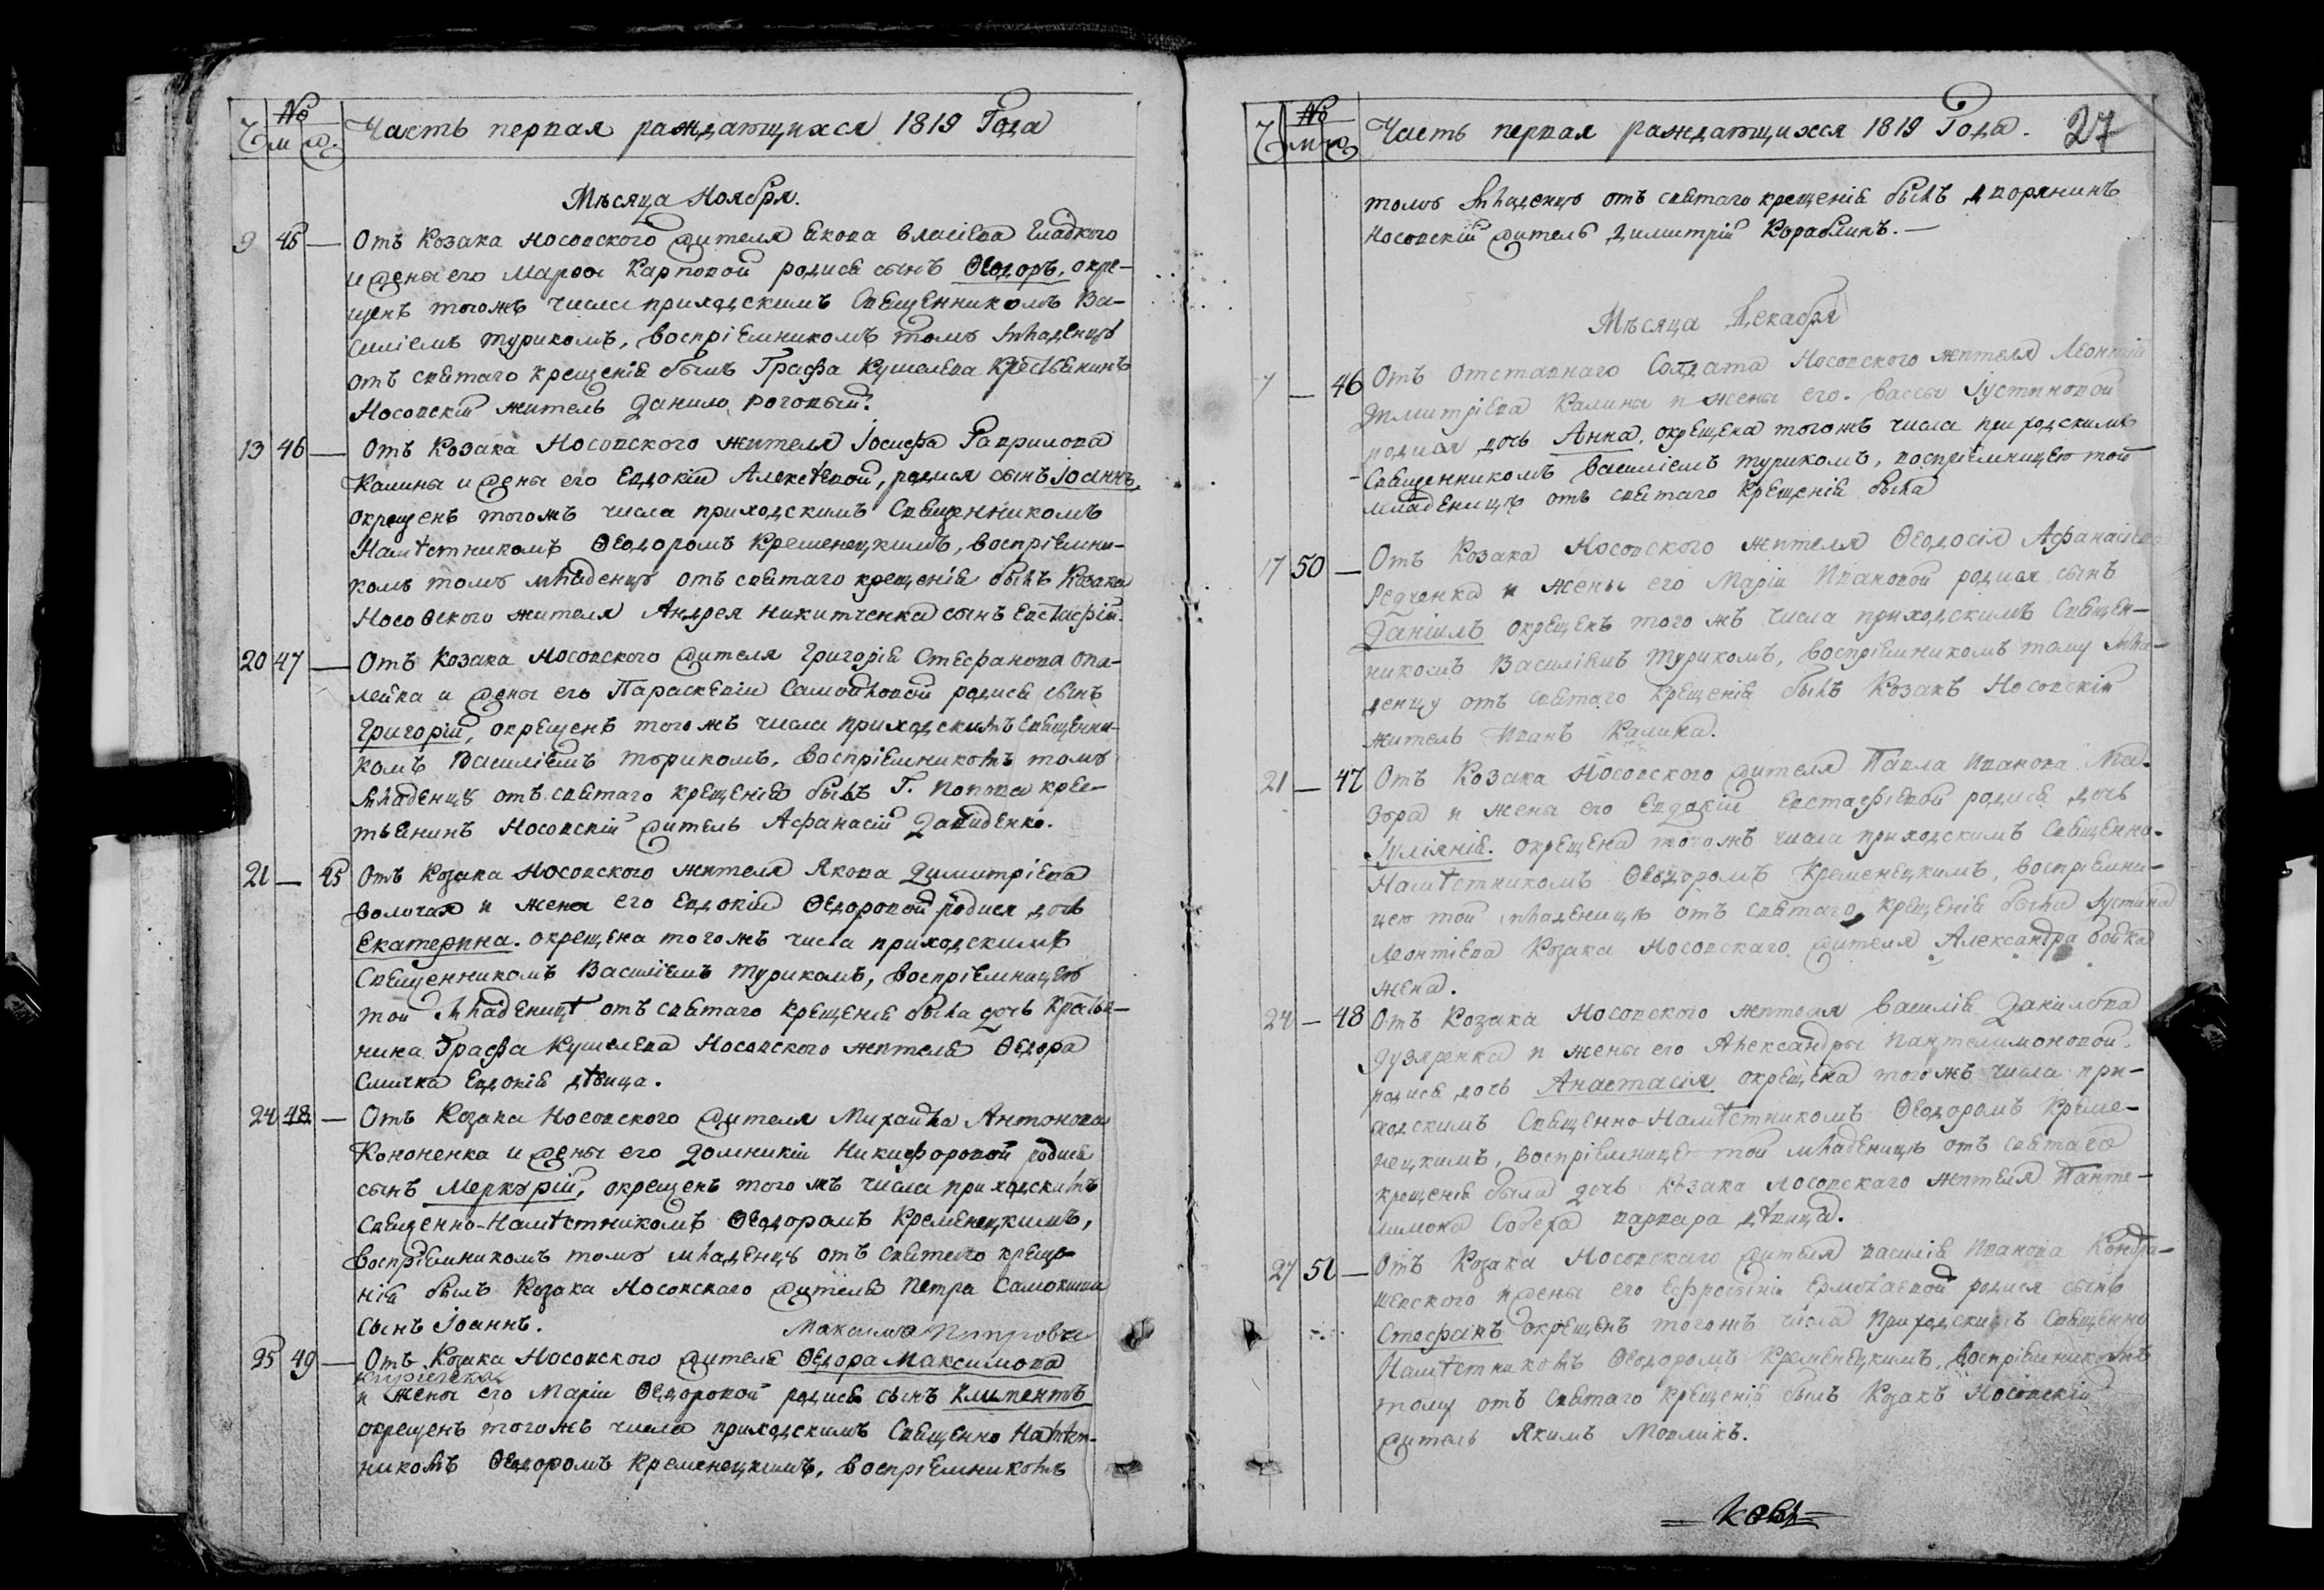 №
Ч м ж. Часть первая раждающихся 1819 Года
Мѣсяца Ноября.
9 45 — Отъ Козака Носовского жителя Якова Власіева Гладкого
и жены его Марѳы Карповой родися сынъ Ѳеодоръ, окре-
щенъ тогожъ числа приходскимъ Священникомъ Ва-
силіемъ Турикомъ, воспріемникомъ тому младенцу
отъ святаго крещенія былъ Графа Кушелева Крестьянинъ
Носовскій житель Данило Роговый.
13 46 — Отъ Козака Носовского жителя Іосифа Гаврилова
Калины и жены его Евдокіи Алексѣевой, родился сынъ Іоаннъ,
окрещенъ тогожъ числа приходскимъ Священникомъ
Намѣстникомъ Ѳеодоромъ Кременецкимъ, воспріемни-
комъ тому младенцу отъ святаго крещенія былъ Козака
Носовского жителя Андрея Никитченка сынъ Евстафій.
20 47 — Отъ Козака Носовского жителя Григорія Стефанова Опа-
лейка и жены его Параскевіи Самойловой родися сынъ
Григорій, окрещенъ тогожъ числа приходскимъ Священни-
комъ Василіемъ Туриком, воспріемникомъ тому
младенцу отъ святаго крещенія былъ Г. Попова крес-
тьянинъ Носовскій житель Афанасій Давиденко.
21 — 45 Отъ Козака Носовского жителя Якова Димитріева
Волочая и жены его Евдокіи Ѳедоровой родися дочь
Екатерина. окрещена тогожъ числа приходскимъ
Священникомъ Василіемъ Турикомъ, воспріемницею
той младеницѣ отъ святаго крещенія была дочь Крестья-
нина Графа Кушелева Носовского жителя Ѳедора
Смычка Евдокія дѣвица.
24 48 — Отъ Козака Носовского жителя Михайла Антонова
Кононенка и жены его Домникіи Никифоровой родися
сынъ Меркурій, окрещенъ того жъ числа приходскимъ
Священно-Намѣстникомъ Ѳеодоромъ Кременецкимъ,
воспріемникомъ тому младенцу отъ святаго креще-
нія былъ Козака Носовскаго жителя Петра Самокиши
сынъ Іоаннъ. Максима
25 49 — Отъ Козака Носовского жителя Ѳедора Максимова
и жены его Маріи Ѳедоровой родися сынъ Климентъ
окрещенъ тогожъ числа приходскимъ Священно Намѣст-
никомъ Ѳеодоромъ Кременецкимъ, воспріемникомъ
№
Ч м ж Часть первая раждающихся 1819 Года. 27
тому младенцу отъ святаго крещенія былъ дворянинъ
Носовскій житель Димитрій Кораблинъ. —
Мѣсяца Декабря
7 — 46 Отъ отставнаго Солдата Носовского жителя Леонтія
Димитріева Калины и жены его. Вассы Іустиновой
родися дочь Анна. окрещена тогожъ числа приходскимъ
Священникомъ Василіемъ Турикомъ, воспріемницею той
младеницѣ отъ святаго крещенія была
17 50 — Отъ Козака Носовского жителя Ѳеодосія Афанасіева
Редченка и жены его Маріи Ивановой родися сынъ
Даніилъ окрещенъ того жъ числа приходскимъ Священ-
никомъ Василіемъ Турикомъ, воспріемникомъ тому мла-
денцу отъ святаго крещенія былъ Козакъ Носовскій
житель Иванъ Калина.
21 — 47 Отъ Козака Носовского жителя Павла Иванова Ма-
зура и жены его Евдокіи Евстафіевой родися дочь
Іуліянія. окрещена тогожъ числа приходскимъ Священно-
Намѣстникомъ Ѳеодоромъ Кременецкимъ, воспріемни-
цею той младеницѣ отъ святаго крещенія была Іустина
Леонтіева Козака Носовскаго жителя Александра Бойка
жена.
24 — 48 Отъ Козака Носовского жителя Василія Данилова
Дузяренка и жены его Александры Пантелимоновой.
родися дочь Анастасія окрещена того жъ числа при-
ходскимъ Священно-Намѣстникомъ Ѳеодоромъ Креме-
нецкимъ, воспріемницею той младеницѣ отъ святаго
крещенія была дочь Козака Носовскаго жителя Панте-
лимона варвара дѣвица.
27 51 — Отъ Козака Носовскаго жителя василія Иванова Кондра-
шевского и жены его Ефросиніи Ермолаевой родися сынъ
Стефанъ окрещенъ тогожъ числа приходскимъ Священно
Намѣстникомъ Ѳеодоромъ Кременецкимъ, воспріемникомъ
тому отъ святаго крещенія былъ Козакъ Носовскій
житель Якимъ Мовликъ.